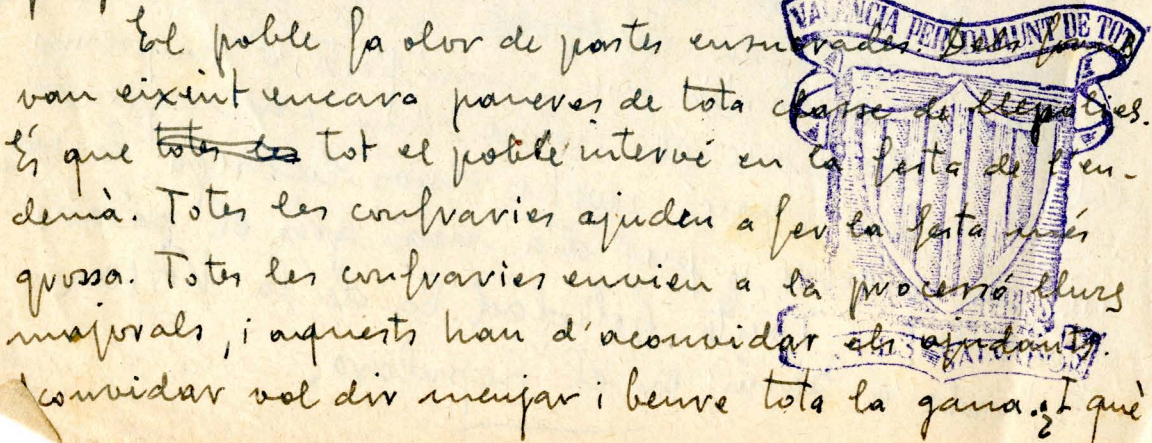 El poble fa olor de pastes ensucrades. Dels forns
van eixint encara paneres de tota classe de llepolies.
És que totes les tot el poble intervé en la festa de l'en-
demà. Totes les confraries ajuden a fer la festa més
grossa. Totes les confraries envien a la processó llurs
majorals, i aquests han d'aconvidar els ajudants.
I convidar vol dir menjar i beure tota la gana. ¿I què
VALENCIA PER DAMUNT DE TOT